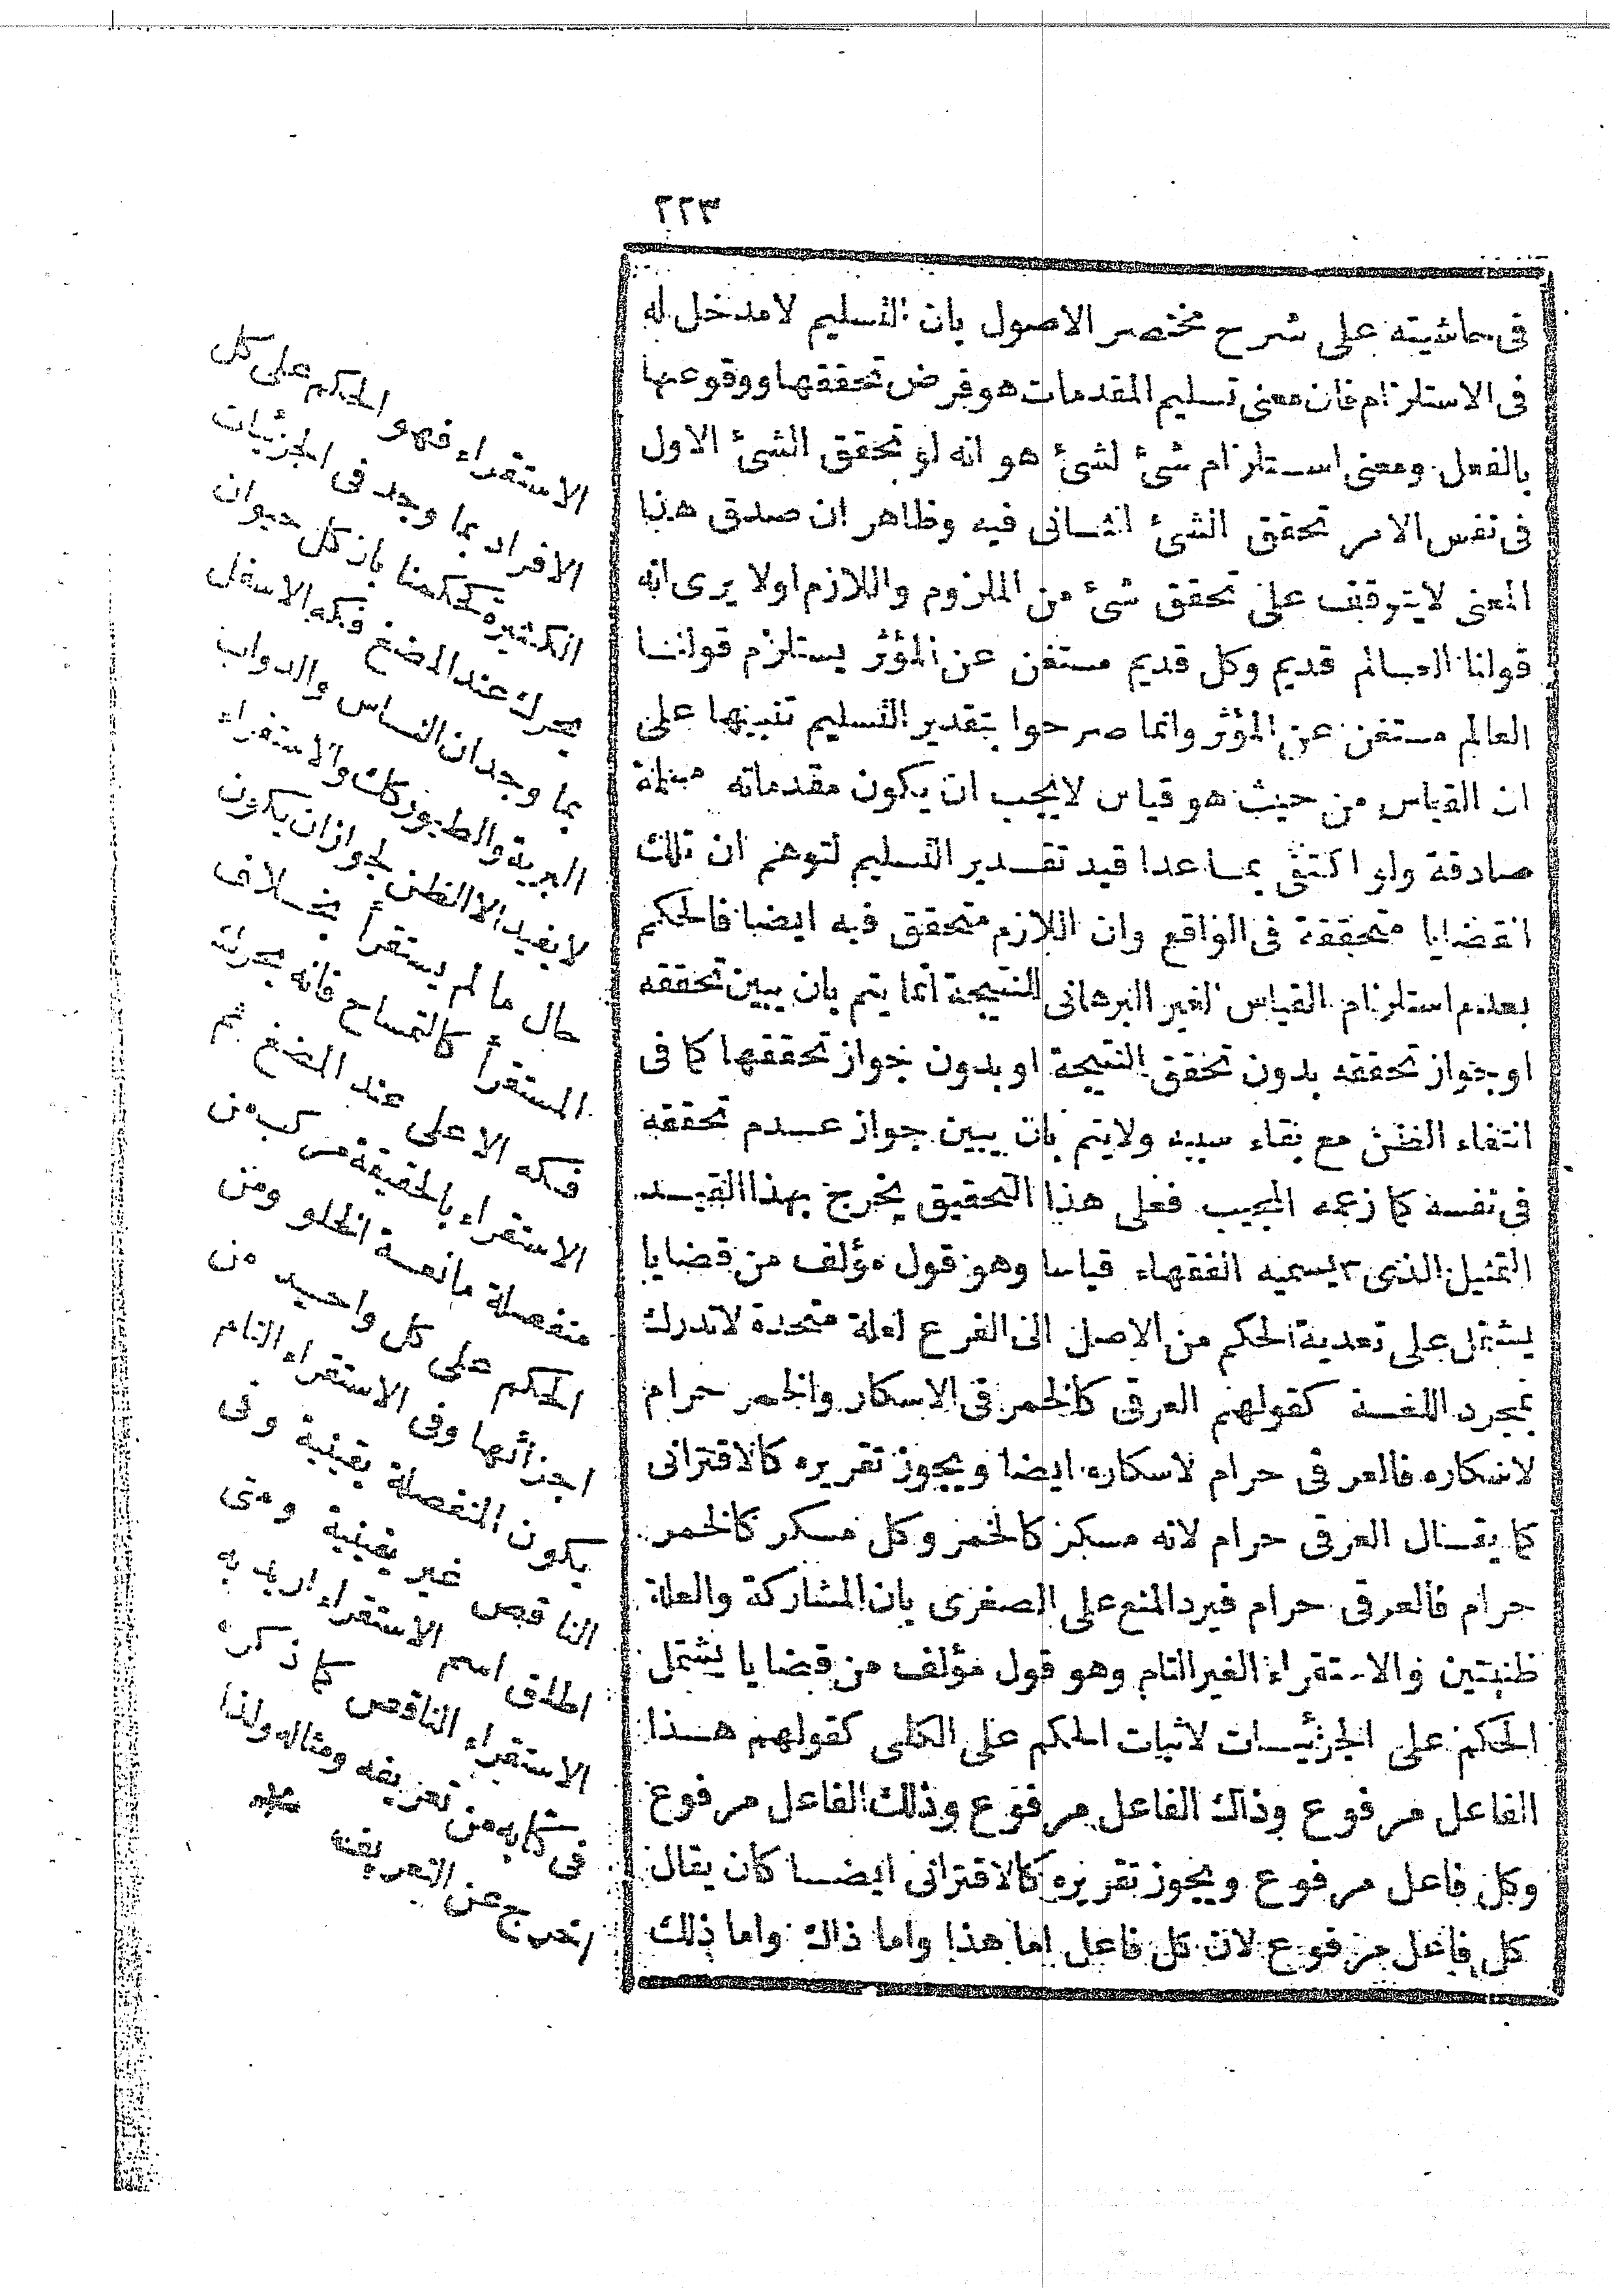 ٢٢٣
فى حاشيته على شرح مختصر الاصول بان التسليم لامدخل له
فى الاستلزام فان معنى تسليم المقدمات هو فرض تحققها ووقوعها
بالفعل ومعنى استلزام شئ لشئ هو انه لو تحقق الشئ الاول
فى نفس الامر تحقق الشئ الثانى فيه وظاهر ان صدق هذا
المعنى لايتوقف على تحقق شئ من الملزوم واللازم اولا يرى انه
قولنا العالم قديم وكل قديم مستغن عن المؤثر يستلزم قولنا
العالم مستغن عن المؤثر وانما صرحوا بتقدير التسليم تنبيها على
ان القياس من حيث هو قياس لايجب ان يكون مقدماته مسلمة
صادقة ولو اكتفى بما عدا قيد تقدير التسليم لتوهم ان تلك
القضايا متحققة فى الواقع وان اللازم متحقق فيه ايضا فالحكم
بعدم استلزام القياس الغير البرهانى النتيجة انما يتم بان يبين تحققه
او جواز تحققه بدون تحقق النتيجة او بدون جواز تحققها كما فى
انتفاء الظن مع بقاء سببه ولايتم بان يبين جواز عدم تحققه
فى نفسه كما زعمه المجيب فعلى هذا التحقيق يخرج بهذا القيد
التمثيل الذى ٢ يسميه الفقهاء قياسا وهو قول مؤلف من قضايا
يشتمل على تعدية الحكم من الاصل الى الفرع لعلة متحدة لاتدرك
بمجرد اللغة كقولهم العرقى كالخمر فى الاسكار والخمر حرام
لاسكاره فالعرقى حرام لاسكاره ايضا ويجوز تقريره كالاقترانى
كما يقال العرقى حرام لانه مسكر كالخمر وكل مسكر كالخمر
حرام فالعرقى حرام فيرد المنع على الصغرى بان المشاركة والعلة
ظنيتين والاستقراء الغير التام وهو قول مؤلف من قضايا يشتمل
الحكم على الجزئيات لاثبات الحكم على الكلى كقولهم هذا
الفاعل مرفوع وذاك الفاعل مرفوع وذلك الفاعل مرفوع
وكل فاعل مرفوع ويجوز تقريره كالاقترانى ايضا كان يقال
كل فاعل مرفوع لان كل فاعل اما هذا واما ذاك واما ذلك
الاستقراء فهو الحكم على كل
الافراد بما وجد فى الجزئيات
الكثيرة كحكمنا بان كل حيوان
يحرك عند المضغ فكه الاسفل
بما وجد ان الناس والدواب
البرية والطيور كك والاستقراء
لايفيد الا الظن لجواز ان يكون
حال ما لم يستقرأ بخلاف
المستقرأ كالتمساح فانه يحرك
فكه الاعلى عند المضغ ثم
الاستقراء بالحقيقة مركب من
منفصلة مانعة الخلو ومن
الحكم على كل واحد من
اجزائها وفى الاستقراء التام
يكون المنفصلة يقينية وفى
الناقص غير يقينية ومتى
اطلاق اسم الاستقراء اريد به
الاستقراء الناقص كما ذكره
فى كتابه من تعريفه ومثاله ولذا
اخرج عن التعريف